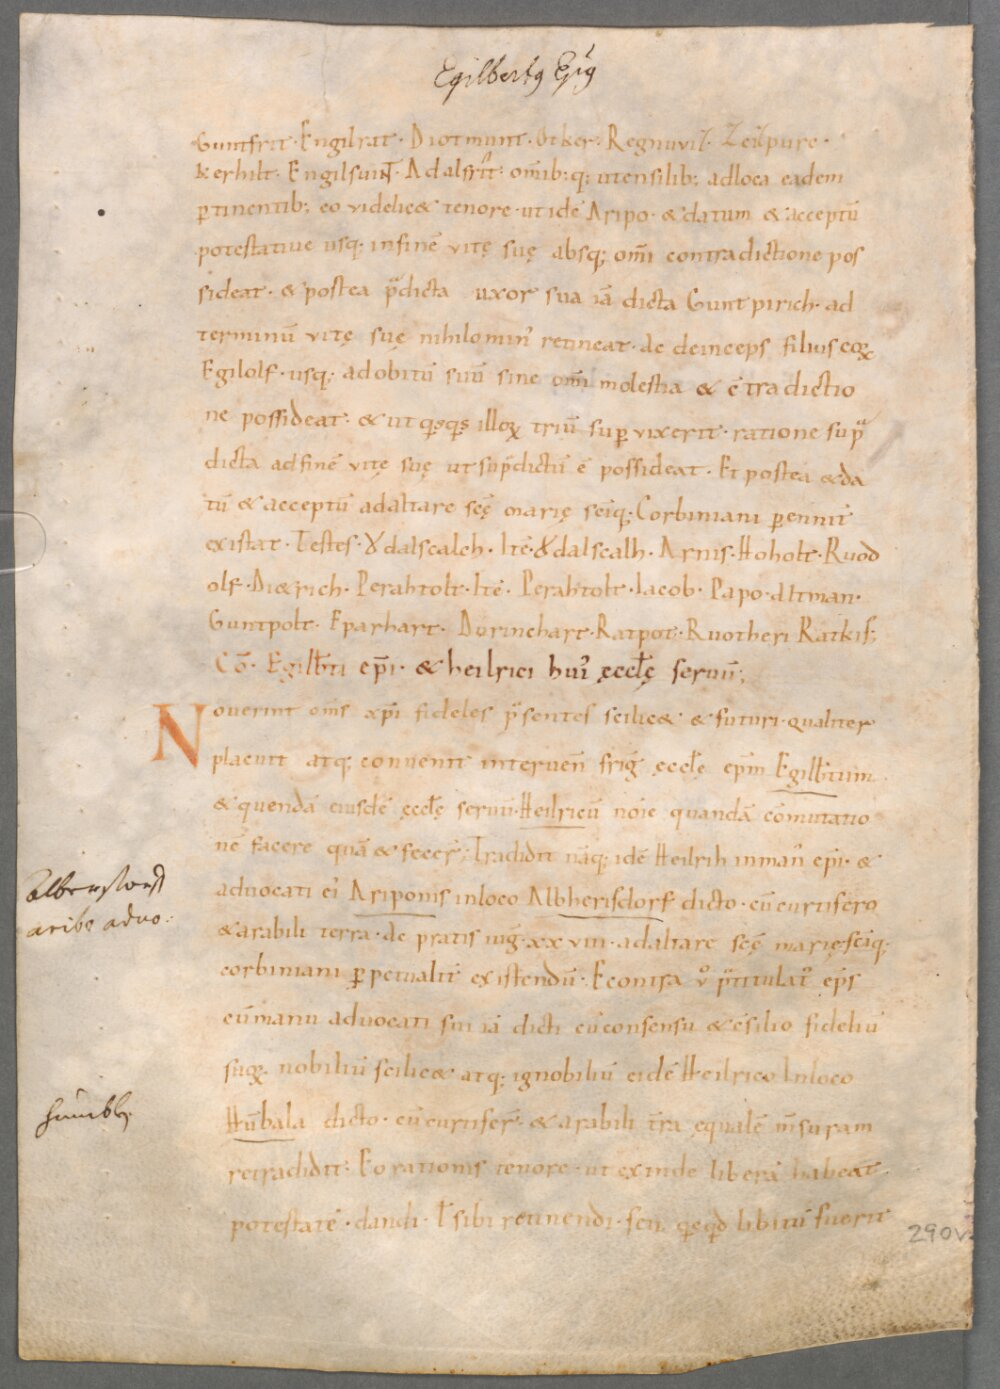 Egilbertꝰ Ep̄ꝰ
Guntfrit · Engilrat · Diotmunt · Otker · Regnuuił · Zeizpurc ·
kerhilt · Engilsuint · Adalfrit · om̄ib:q; utensilib; adloca eadem
ꝑtinentib; eo videlic& tenore · ut idē Aripo · & datum & acceptū
potestatiue usq; infinē vitę suę absq; om̄i contradictione pos
sideat · & postea p̄dicta uxor sua iā dicta Guntpirich · ad
terminū vitę suę nihilominꝰ retineat · ac deinceps filius eoꝝ
Egilolf · usq; adobitū suū sine om̄i molestia & c̄tradictio
ne possideat · & ut qͥsqͥs illoꝝ triū supͥvixerit · ratione sup̄
dicta adfinē vitę suę ut sup̄dictū ē possideat · Et postea & da
tū & acceptū adaltare scę̄ marię sc̄iq; Corbiniani ꝑennit̄
existat · Testes · Ȣdalscalch · Itē · Ȣdalscalh · Arnis · Hoholt · Ruod
olf · Di&rich · Perahtolt · Itē · Perahtolt · Iacob · Papo · Altman ·
Guntpolt · Eparhart · Durinchart · Ratpot · Ruotheri Ratkis;
Cō · Egilb̄ti ep̄i · & heilrici huiꝰ ęccłę seruū;
Nouerint om̄s xp̄i fideles p̄sentes scilic& & futuri · qualiter
placuit atq; conuenit interuen̄ friḡ ęccłę ep̄m Egilb̄tum
& quendā eiusdē ęccłę seruū · Heilricū noīe quandā cōmutatio
nē facere quā & fecer̄; Tradidit nāq; idē Heilrih inman̄ ep̄i · &
aduocati eiꝰ Ariponis inloco Albherisdorf dicto · cū curtifero
& arabili terra · de pratis iuḡ · xx viii · adaltare scę̄ marię · sc̄iq;
corbiniani ꝑpetualit̄ existendū · Econtra v̊ p̄titulatꝰ ep̄s
cū manu aduocati sui iā dicti cū consensu & c̄silio fideliū
suoꝝ · nobiliū scilic& atq; ignobiliū eidē Heilrico inloco
Hūbala dicto · cū curtifer̄ · & arabili t̄ra ęqualē m̄suram
retradidit · Eo rationis tenore · ut exinde liberā habeat
potestatē · dandi · ł sibi retinendi · seu qͥcqͥd libitū fuerit
Alberstorff
aribo aduo:
humbl:
290v